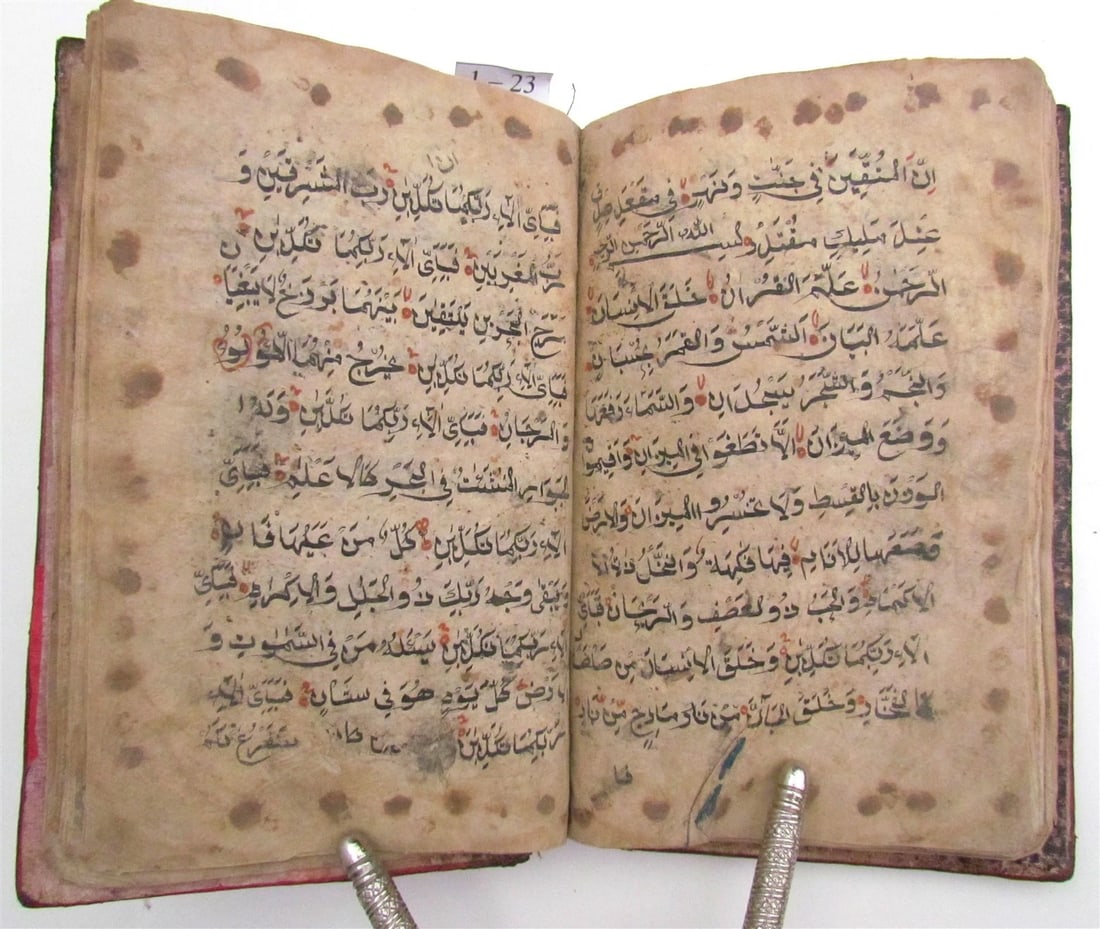 1 – 23
اِنَّ الْمُتَّقِيْنَ فِي جَنّٰتٍ وَنَهَرٍ فِي مَقْعَدِ صِدْقٍ
عِنْدَ مَلِيْكٍ مُقْتَدِرٍ بسم الله الرحمن الرحيم
الرَّحْمٰنُ عَلَّمَ الْقُرْاٰنَ خَلَقَ الْاِنْسَانَ
عَلَّمَهُ الْبَيَانَ اَلشَّمْسُ وَالْقَمَرُ بِحُسْبَانٍ
وَالنَّجْمُ وَالشَّجَرُ يَسْجُدَانِ وَالسَّمَاءَ رَفَعَهَا
وَوَضَعَ الْمِيْزَانَ اَلَّا تَطْغَوْا فِي الْمِيْزَانِ وَاَقِيْمُوا
الْوَزْنَ بِالْقِسْطِ وَلَا تُخْسِرُوا الْمِيْزَانَ وَالْاَرْضَ
وَضَعَهَا لِلْاَنَامِ فِيْهَا فَاكِهَةٌ وَالنَّخْلُ ذَاتُ
الْاَكْمَامِ وَالْحَبُّ ذُو الْعَصْفِ وَالرَّيْحَانُ فَبِاَيِّ
اٰلَاءِ رَبِّكُمَا تُكَذِّبٰنِ وَخَلَقَ الْاِنْسَانَ مِنْ صَلْصَالٍ
كَالْفَخَّارِ وَخَلَقَ الْجَانَّ مِنْ مَارِجٍ مِنْ نَارٍ
فبا
فَبِاَيِّ اٰلَاءِ رَبِّكُمَا تُكَذِّبٰنِ رَبُّ الْمَشْرِقَيْنِ وَ
رَبُّ الْمَغْرِبَيْنِ فَبِاَيِّ اٰلَاءِ رَبِّكُمَا تُكَذِّبٰنِ
مَرَجَ الْبَحْرَيْنِ يَلْتَقِيٰنِ بَيْنَهُمَا بَرْزَخٌ لَا يَبْغِيَانِ
فَبِاَيِّ اٰلَاءِ رَبِّكُمَا تُكَذِّبٰنِ يَخْرُجُ مِنْهُمَا اللُّؤْلُؤُ
وَالْمَرْجَانُ فَبِاَيِّ اٰلَاءِ رَبِّكُمَا تُكَذِّبٰنِ وَلَهُ
الْجَوَارِ الْمُنْشَئٰتُ فِي الْبَحْرِ كَالْاَعْلَامِ فَبِاَيِّ
اٰلَاءِ رَبِّكُمَا تُكَذِّبٰنِ كُلُّ مَنْ عَلَيْهَا فَانٍ
وَيَبْقٰى وَجْهُ رَبِّكَ ذُو الْجَلٰلِ وَالْاِكْرَامِ فَبِاَيِّ
اٰلَاءِ رَبِّكُمَا تُكَذِّبٰنِ يَسْئَلُهُ مَنْ فِي السَّمٰوٰتِ وَ
الْاَرْضِ كُلَّ يَوْمٍ هُوَ فِي شَاْنٍ فَبِاَيِّ اٰلَاءِ
رَبِّكُمَا تُكَذِّبٰنِ سَنَفْرُغُ لَكُمْ